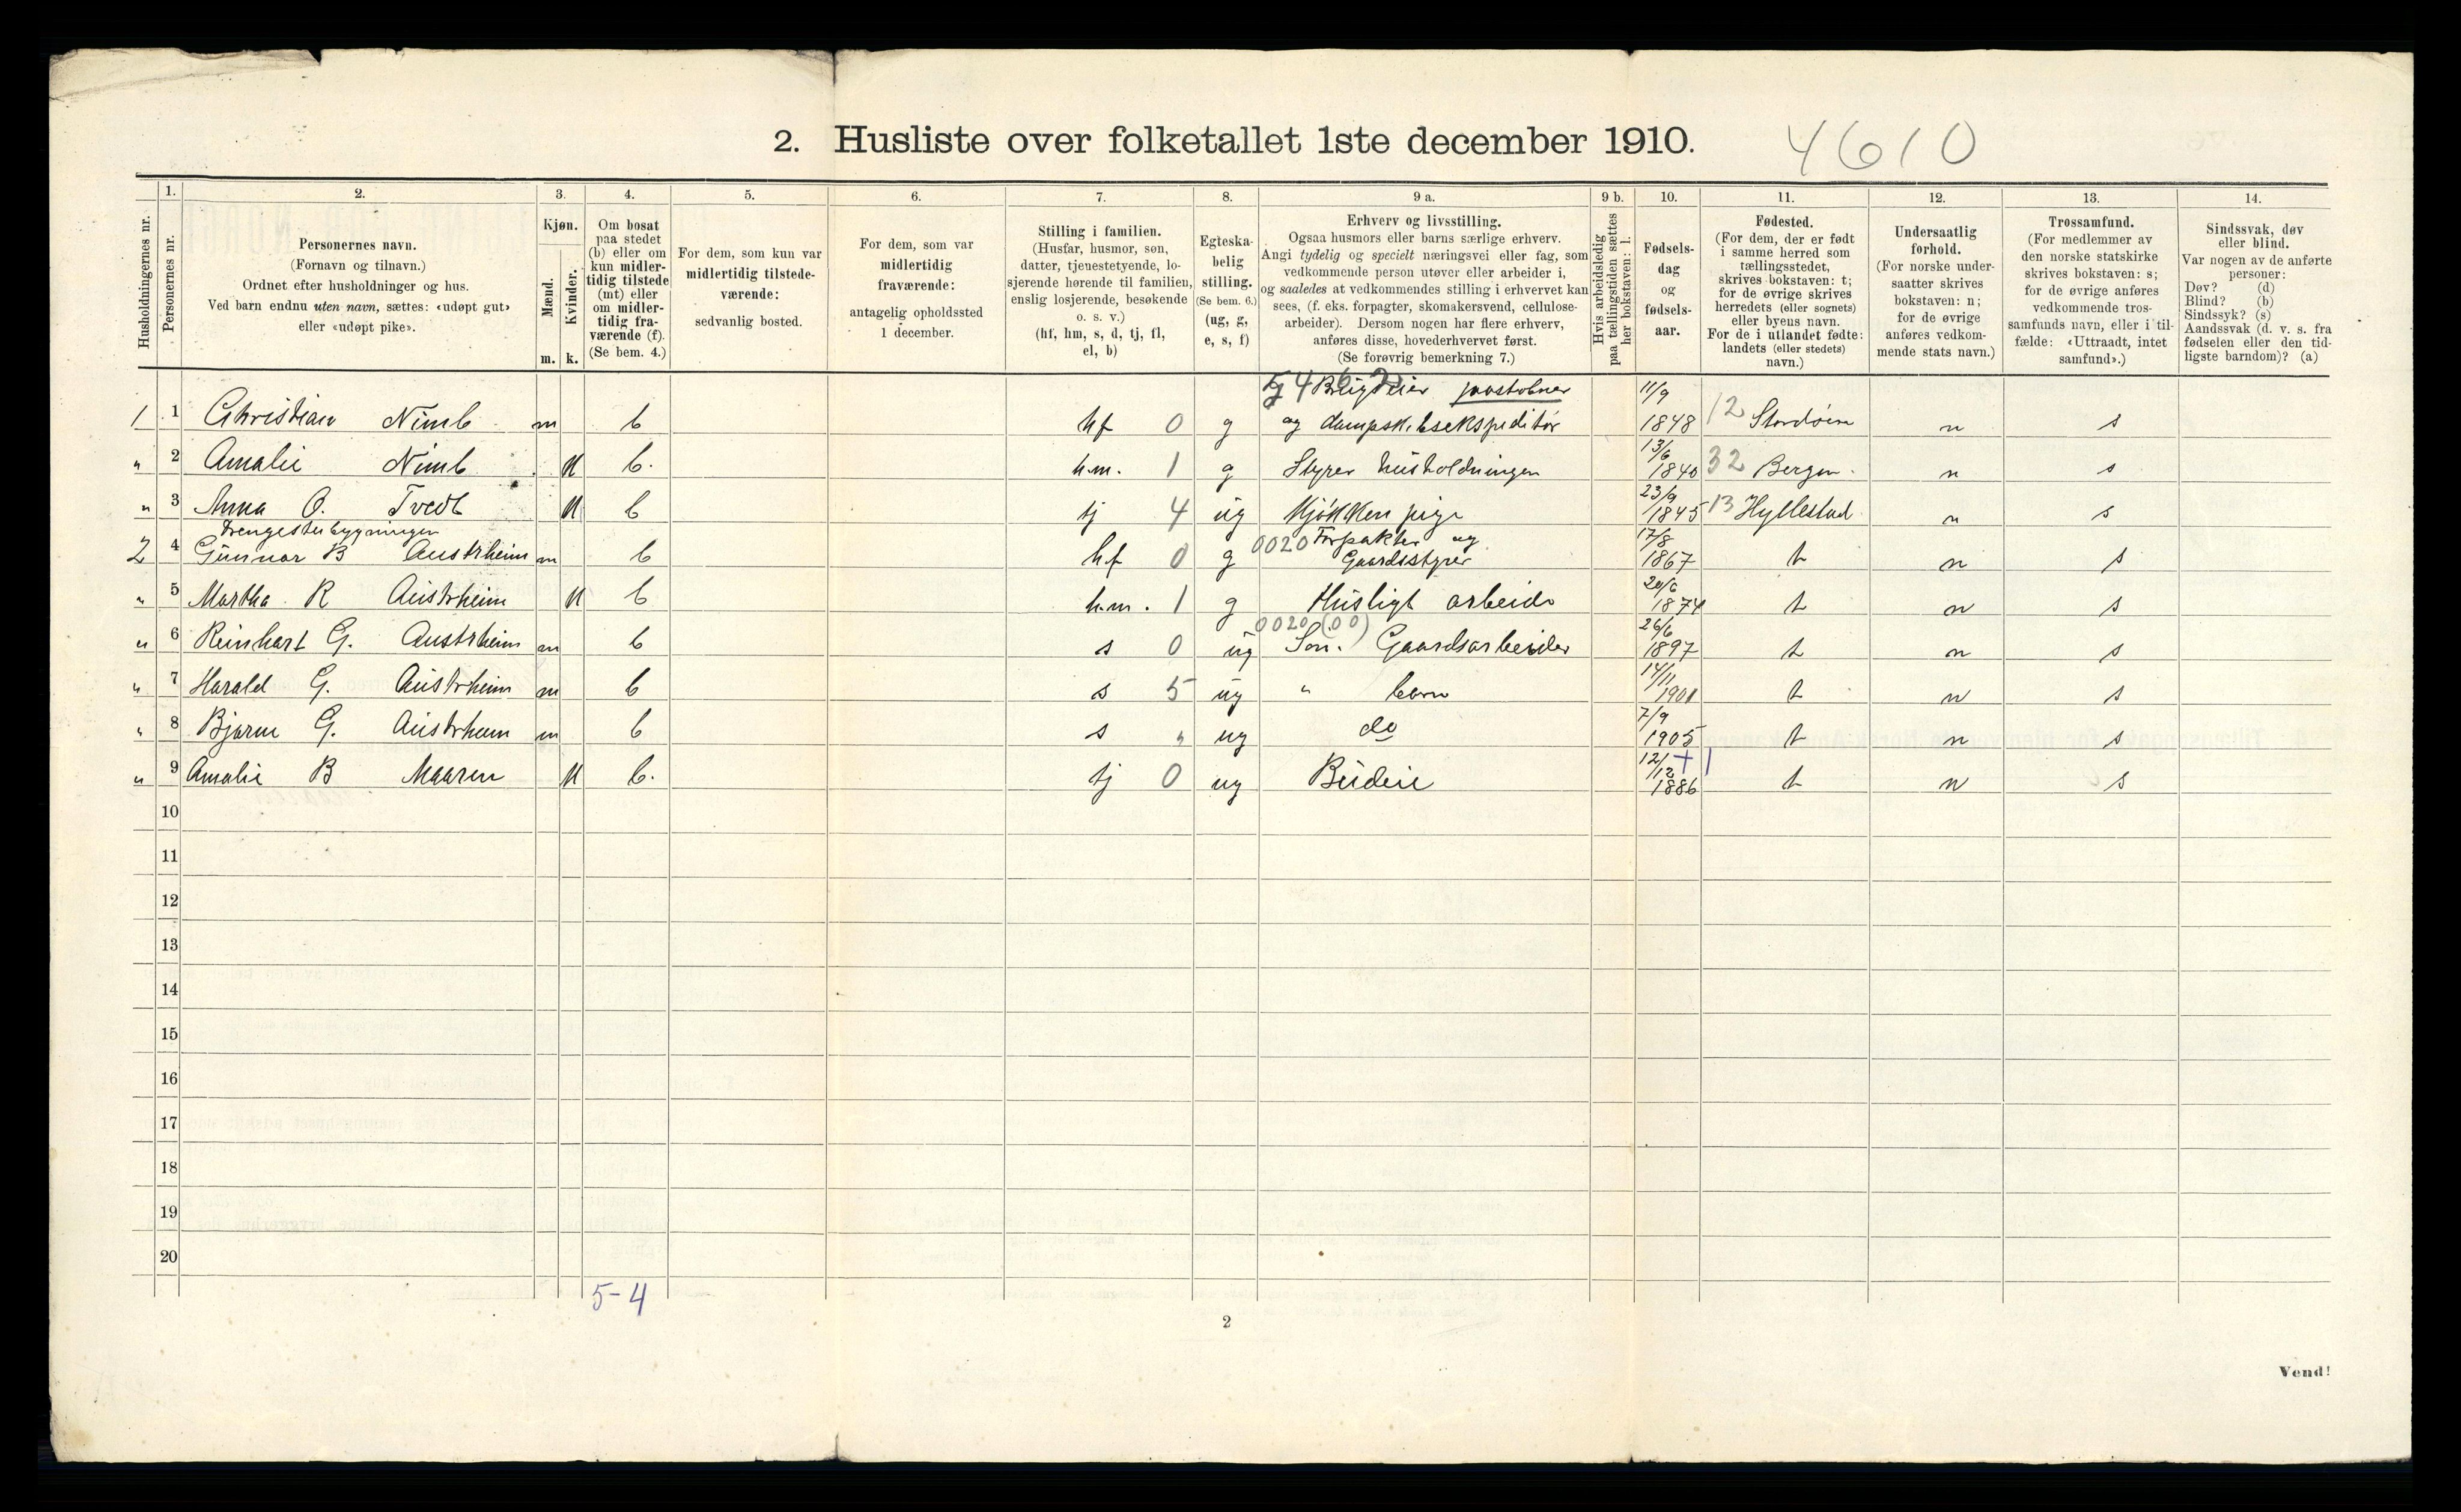 2. Husliste over folketallet 1ste december 1910. 4610
Husholdningernes nr.
1. Personernes nr.
2. Personernes navn.
(Fornavn og tilnavn.)
Ordnet efter husholdninger og hus.
Ved barn endnu uten navn, sættes: «udøpt gut»
eller «udøpt pike».
3. Kjøn.
Mænd. m.
Kvinder. k.
4. Om bosat
paa stedet
(b) eller om
kun midler-
tidig tilstede
(mt) eller
om midler-
tidig fra-
værende (f).
(Se bem. 4.)
5. For dem, som kun var
midlertidig tilstede-
værende:
sedvanlig bosted.
6. For dem, som var
midlertidig
fraværende:
antagelig opholdssted
1 december.
7. Stilling i familien.
(Husfar, husmor, søn,
datter, tjenestetyende, lo-
sjerende hørende til familien,
enslig losjerende, besøkende
o. s. v.)
(hf, hm, s, d, tj, fl,
el, b)
8. Egteska-
belig
stilling.
(Se bem. 6.)
(ug, g,
e, s, f)
9 a. Erhverv og livsstilling.
Ogsaa husmors eller barns særlige erhverv.
Angi tydelig og specielt næringsvei eller fag, som
vedkommende person utøver eller arbeider i,
og saaledes at vedkommendes stilling i erhvervet kan
sees, (f. eks. forpagter, skomakersvend, cellulose-
arbeider). Dersom nogen har flere erhverv,
anføres disse, hovederhvervet først.
(Se forøvrig bemerkning 7.)
9 b. Hvis arbeidsledig
paa tællingstiden sættes
her bokstaven: l.
10. Fødsels-
dag
og
fødsels-
aar.
11. Fødested.
(For dem, der er født
i samme herred som
tællingsstedet,
skrives bokstaven: t;
for de øvrige skrives
herredets (eller sognets)
eller byens navn.
For de i utlandet fødte:
landets (eller stedets)
navn.)
12. Undersaatlig
forhold.
(For norske under-
saatter skrives
bokstaven: n;
for de øvrige
anføres vedkom-
mende stats navn.)
13. Trossamfund.
(For medlemmer av
den norske statskirke
skrives bokstaven: s;
for de øvrige anføres
vedkommende tros-
samfunds navn, eller i til-
fælde: «Uttraadt, intet
samfund».)
14. Sindssvak, døv
eller blind.
Var nogen av de anførte
personer:
Døv? (d)
Blind? (b)
Sindssyk? (s)
Aandssvak (d. v. s. fra
fødselen eller den tid-
ligste barndom)? (a)
1 1 Christian Nimb m b hf 0 g postobner og dampsk.bsekspeditør 11/9 1848 12 Stordøen n s
" 2 Amalie Nimb k b. hm. 1 g Styrer husholdningen 13/6 1840 32 Bergen. n s
" 3 Anna O. Tvedt k b tj 4 ug Kjøkken pige 23/9 1845 13 Hyllestad n s
Drengestubygningen
2 4 Gunnar B Austrheim m b hf 0 g 0020 Forpakter og Gaardsstyrer 17/8 1867 t n s
" 5 Martha R Austrheim k b h.m. 1 g Husligt arbeide 20/6 1874 t n s
" 6 Reinhart G. Austrheim m b s 0 ug 0020 (00) Søn. Gaardsarbeider 26/6 1897 t n s
" 7 Harald G. Austrheim m b s 5 ug " barn 14/11 1901 t n s
" 8 Bjarne G. Austrheim m b s " ug do 7/9 1905 t n s
" 9 Amalie B Maaren k b. tj 0 ug Budeie 12/12 1886 t n s
10
11
12
13
14
15
16
17
18
19
20
5-4
2
Vend!